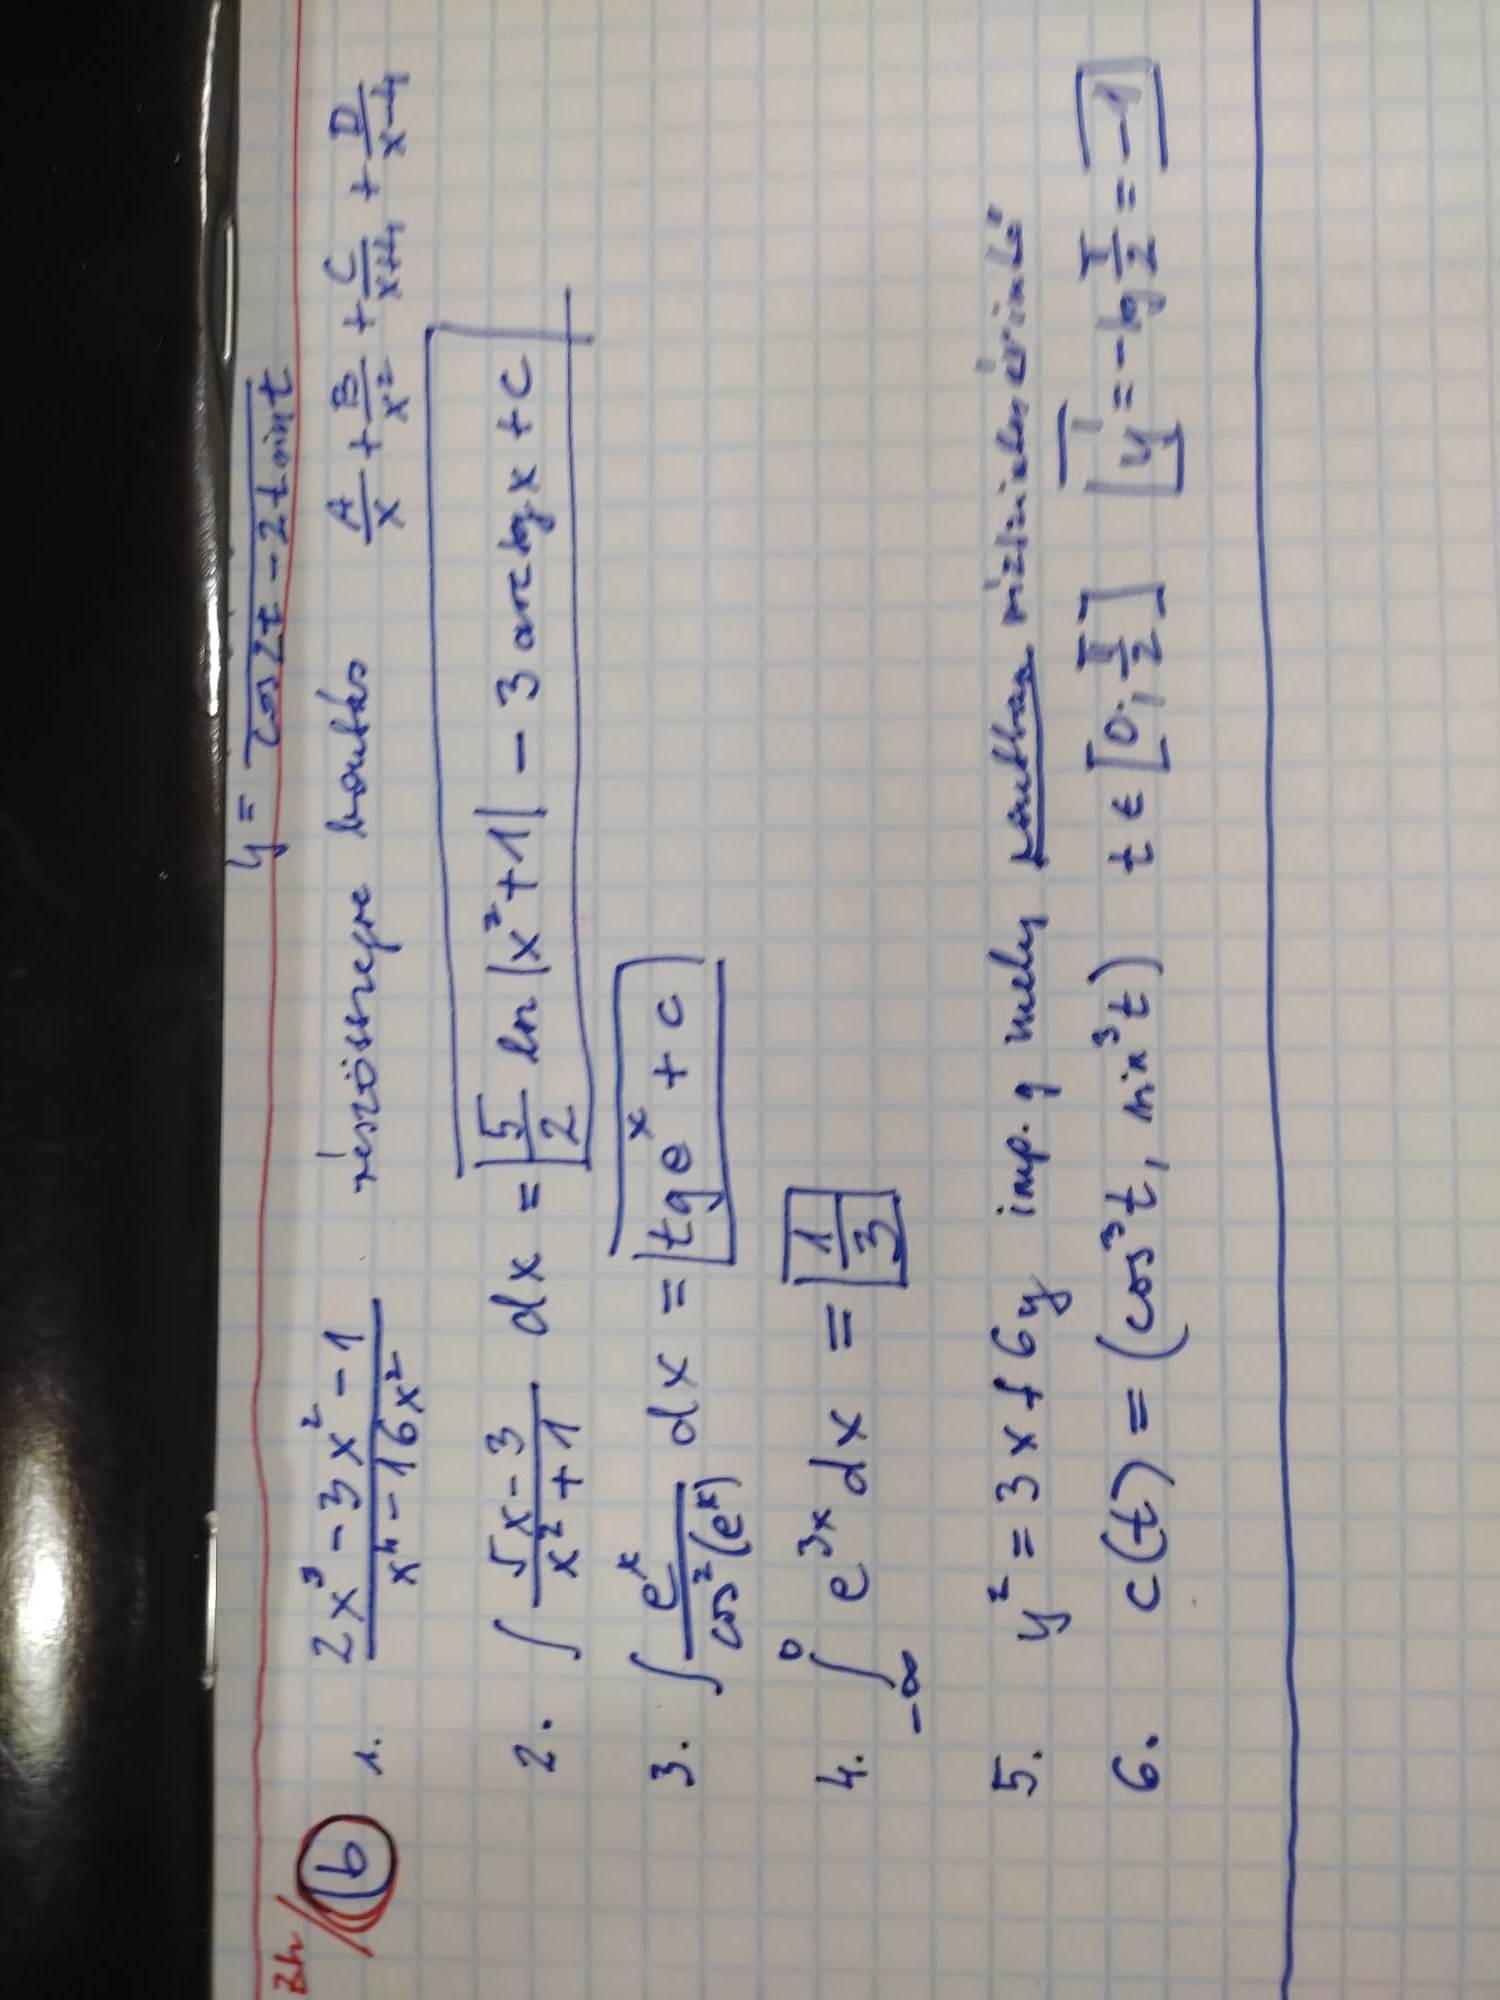 y = cos2t - 2t sin t
Zh/
b 1. (2x³ - 3x² - 1)/(x⁴ - 16x²) részösszegre bontás A/x + B/x² + C/(x+4) + D/(x-4)
2. ∫ (5x - 3)/(x² + 1) dx = 5/2 ln |x² + 1| - 3 arctg x + c
3. ∫ eˣ/cos²(eˣ) dx = tg eˣ + c
4. ∫₋∞⁰ e³ˣ dx = 1/3
5. y² = 3x + 6y imp. g mely pontban vízszintes érintő
6. c(t) = (cos³t, sin³t) t ∈ [0; π/2] y' = -tg π/2 = -1